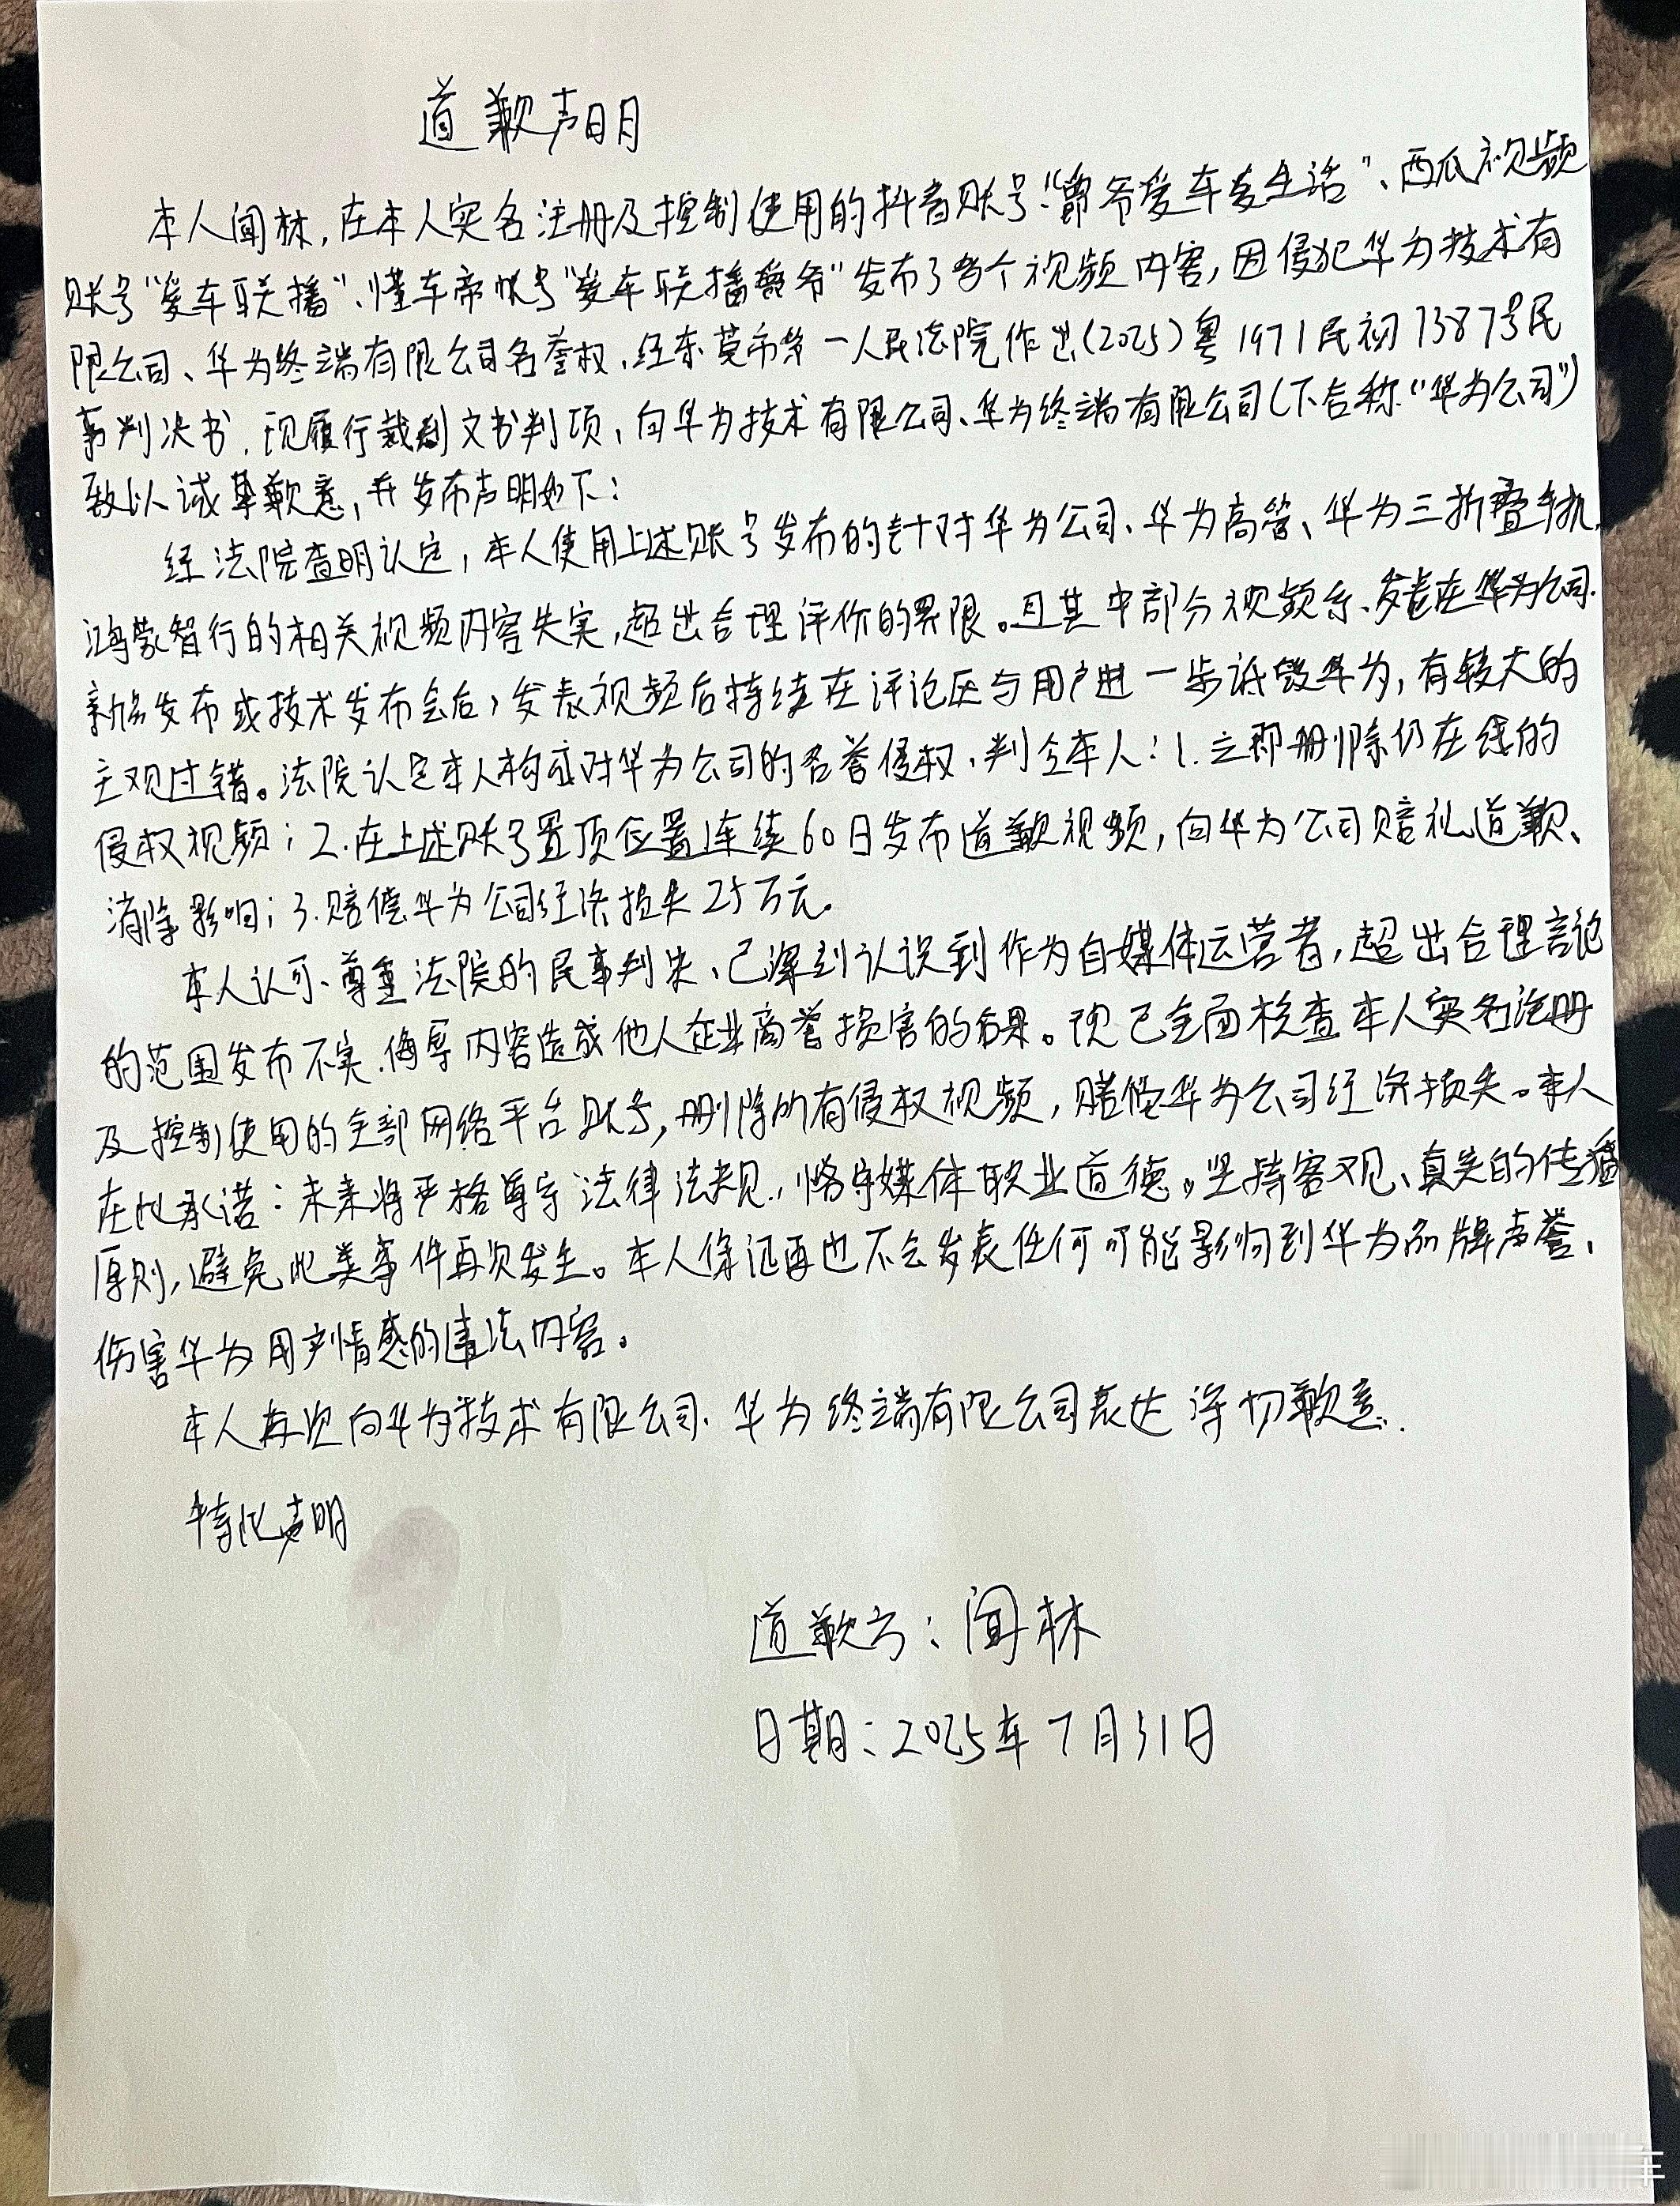 道歉声明
本人闻林,在本人实名注册及控制使用的抖音账号“爵爷爱车爱生活”、西瓜视频
账号“爱车联播”、懂车帝帐号“爱车联播爵爷”发布了多个视频内容,因侵犯华为技术有
限公司、华为终端有限公司名誉权,经东莞市第一人民法院作出(2025)粤1971民初7387号民
事判决书,现履行裁判文书判项,向华为技术有限公司、华为终端有限公司(下合称“华为公司”)
致以诚挚歉意,并发布声明如下:
经法院查明认定,本人使用上述账号发布的针对华为公司、华为高管、华为三折叠手机、
鸿蒙智行的相关视频内容失实,超出合理评价的界限。且其中部分视频系发表在华为公司
新品发布或技术发布会后,发表视频后持续在评论区与用户进一步诋毁华为,有较大的
主观过错。法院认定本人构成对华为公司的名誉侵权,判令本人:1.立即删除仍在线的
侵权视频;2.在上述账号置顶位置连续60日发布道歉视频,向华为公司赔礼道歉、
消除影响;3.赔偿华为公司经济损失25万元。
本人认可、尊重法院的民事判决、已深刻认识到作为自媒体运营者,超出合理言论
的范围发布不实、侮辱内容造成他人企业商誉损害的后果。现已全面核查本人实名注册
及控制使用的全部网络平台账号,删除所有侵权视频,赔偿华为公司经济损失。本人
在此承诺:未来将严格遵守法律法规,恪守媒体职业道德。坚持客观、真实的传播
原则,避免此类事件再次发生。本人保证再也不会发表任何可能影响到华为品牌声誉、
伤害华为用户情感的违法内容。
本人再次向华为技术有限公司、华为终端有限公司表达深切歉意.
特此声明
道歉方:闻林
日期:2025年7月31日